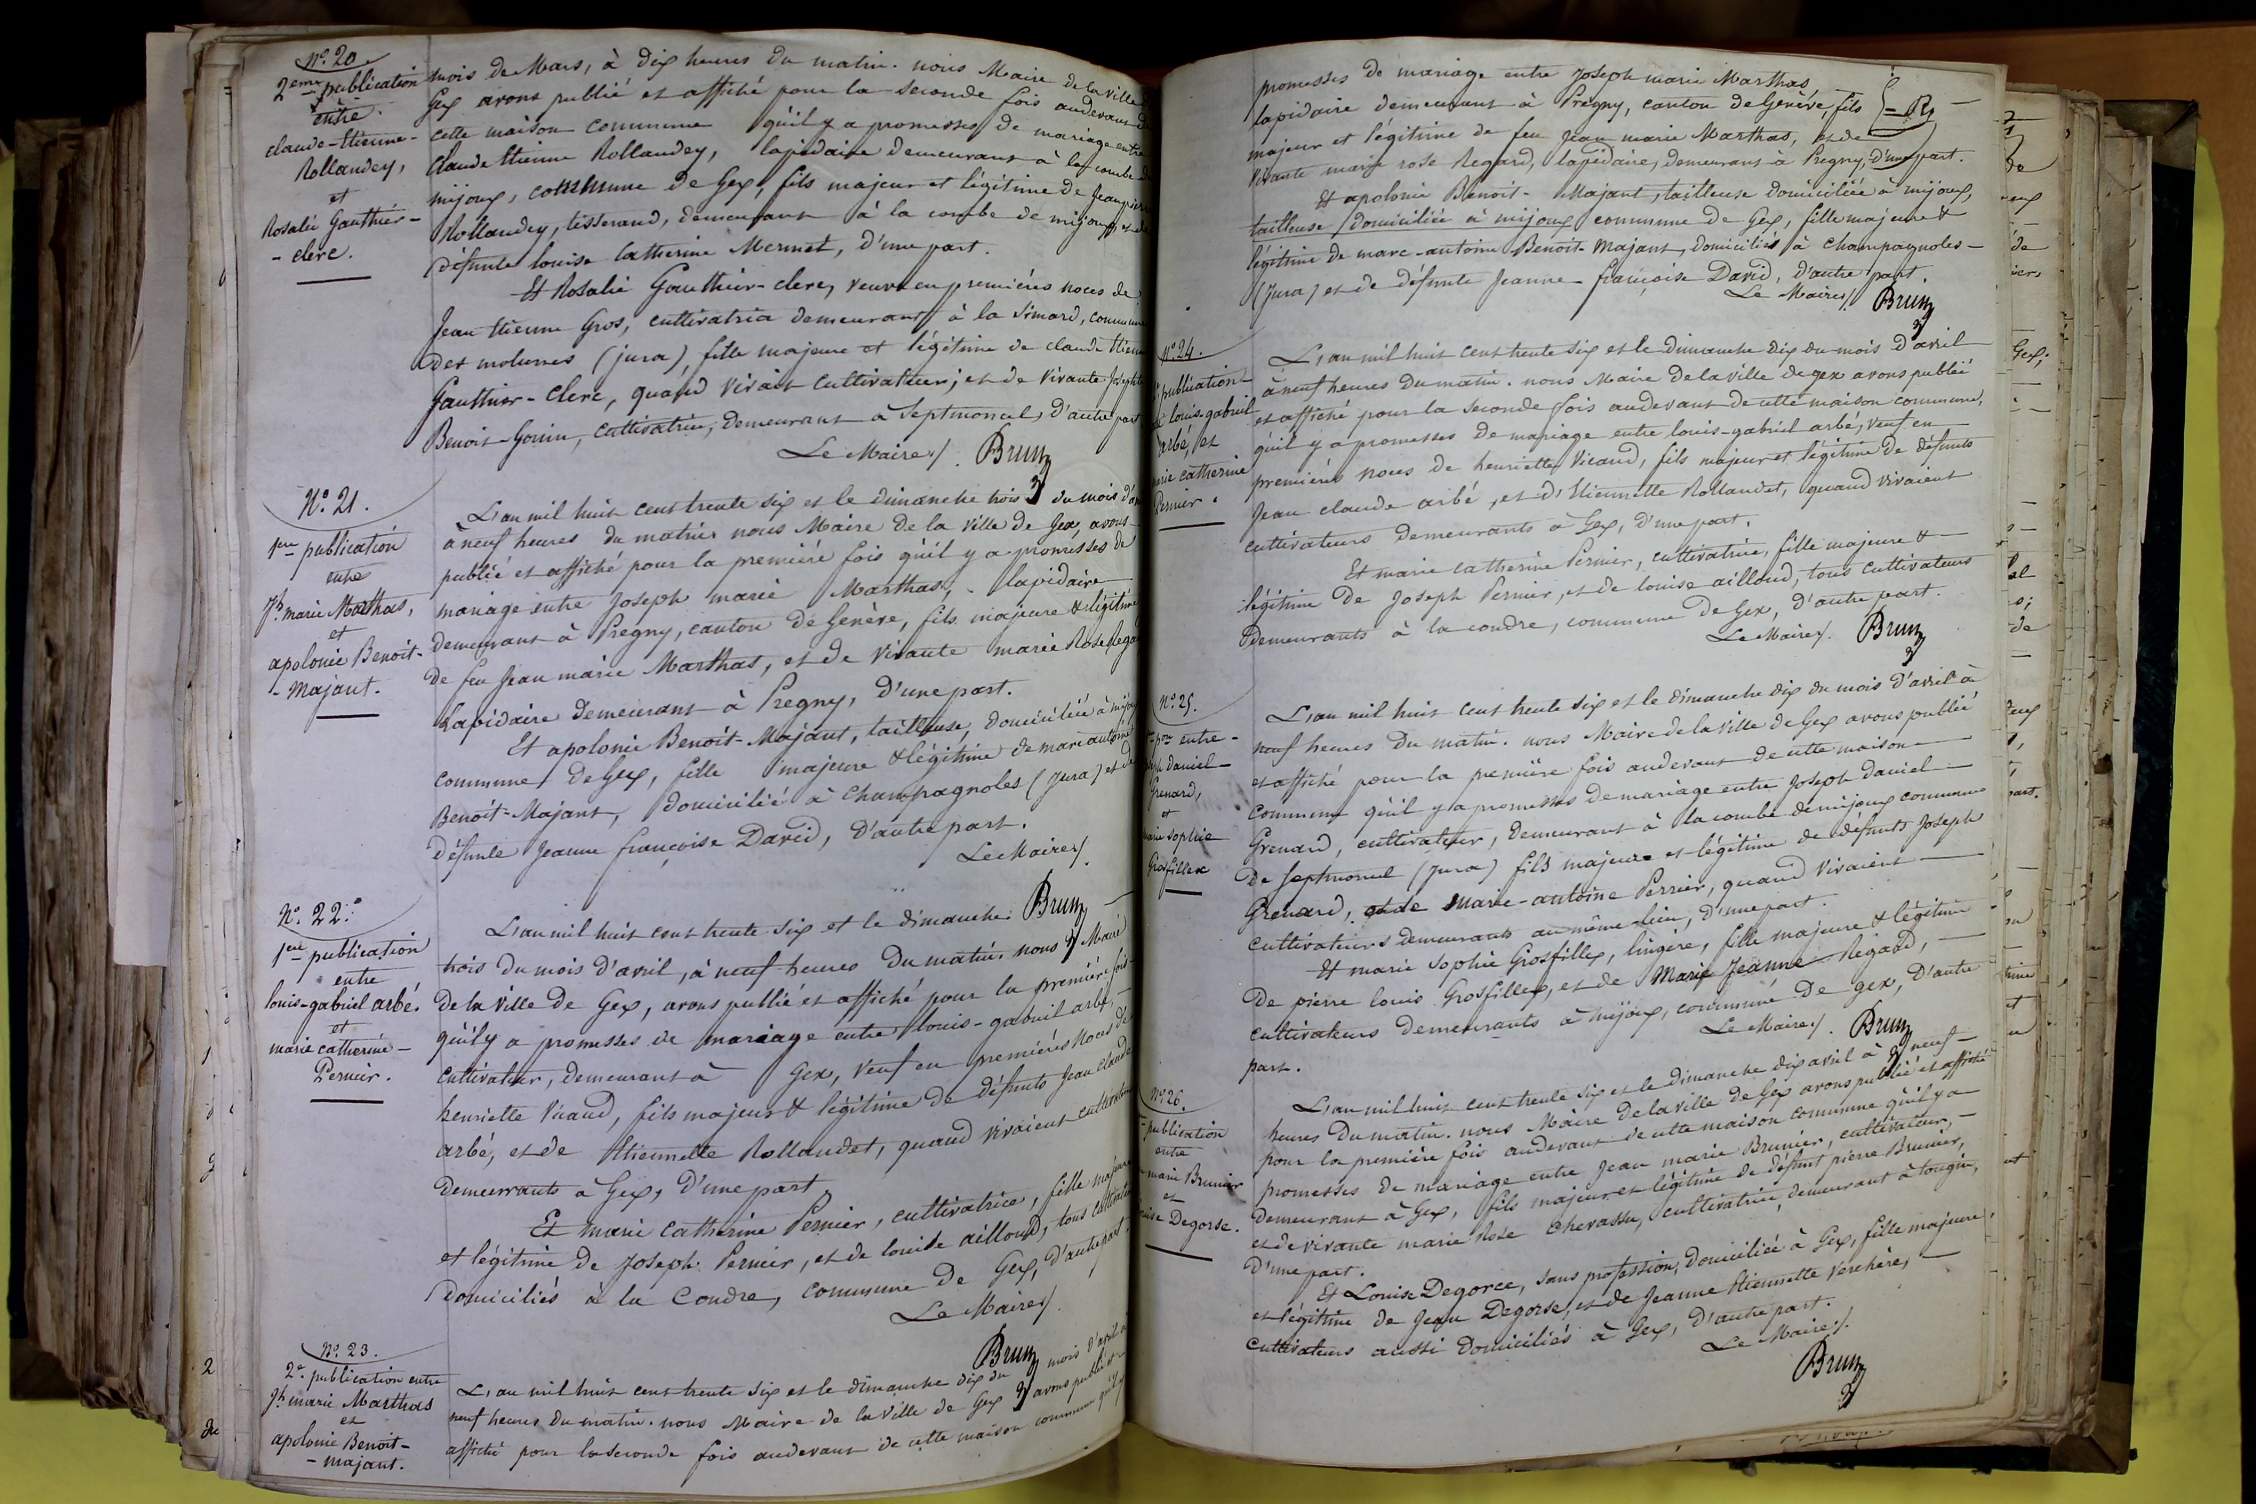 N.° 20
2eme publication
entre
claude-Etienne-
Rollandey,
et
Rosalie Gauthier-
-clerc.
mois de Mars, à dix heures du matin. nous Maire de la ville
Gex avons publié et affiché pour la seconde fois audevant de
cette maison commune qu'il y a promesses de mariage entre
Claude Etienne Rollandey, lapidaire demeurant à la combe de
mijoux, commune de Gex, fils majeur et légitime de Jean pierre
Rollandey, tisserand, demeurant à la combe de mijoux, et de
défunte louise Catherine Mermet, d'une part.
Et Rosalie Gauthier-clerc, veuve en premières noces de
Jean Etienne Gros, cultivatrice demeurant à la Simard, commune
des molunes (jura), fille majeure et légitime de claude Etienne
Gauthier-Clerc, quand vivait cultivateur; et de vivante Josephte
Benoit-Gonin, cultivatrice, demeurant à Septmoncel, d'autre part
Le Maire/. Brun
N.° 21.
1ere publication
entre
Jh marie Marthas,
et
apolonie Benoit-
-Majant.
L'an mil huit cent trente six et le dimanche trois du mois d'a
à neuf heures du matin, nous Maire de la ville de Gex, avons
publié et affiché pour la première fois qu'il y a promesses de
mariage entre Joseph marie Marthas, lapidaire
demeurant à Pregny, canton de Genève, fils majeure & légitime
de feu Jean marie Marthas, et de vivante marie Rose Rega
Lapidaire demeurant à Pregny, d'une part.
Et apolonie Benoit-Majant, tailleuse, domiciliée à mijoux
commune de Gex, fille majeure & légitime de marc antoine
Benoit-Majant, domicilié à Champagnoles (Jura) et de
défunte Jeanne françoise David, d'autre part.
Le Maire/.
Brun
N.° 22.°
1ere publication
entre
louis-gabriel arbé,
et
marie catherine-
Pernier.
L'an mil huit cent trente six et le dimanche
trois du mois d'avril, à neuf heures du matin, nous Maire
de la ville de Gex, avons publié et affiché pour la première fois
qu'il y a promesses de mariage entre louis-gabriel arbé,
cultivateur, demeurant à Gex, veuf en premières noces de
henriette Vicaud, fils majeur & légitime de défunts Jean claude
arbé, et de Etiennette Rollandet, quand vivaient cultivateurs
demeurants à Gex, d'une part
Et marie catherine Pernier, cultivatrice, fille majeure
et légitime de Joseph Pernier, et de louise ailloud, tous cultivateurs
domiciliés à la Coudre, commune de Gex, d'autre part.
Le Maire/.
Brun
N.° 23.
2.e publication entre
Jh marie Marthas
et
apolonie Benoit-
-majant.
L'an mil huit cent trente six et le dimanche dix du mois d'avril à
neuf heures du matin. nous Maire de la ville de Gex avons publié et
affiché pour la seconde fois audevant de cette maison commune qu'il y
promesses de mariage entre Joseph marie Marthas
lapidaire demeurant à Pregny, canton de Genève, fils
majeur et légitime de feu Jean marie Marthas, et de
vivante marie rose Regard, lapidaire, demeurant à Pregny, d'une part.
Et apolonie Benoit-Majant, tailleuse domiciliée à mijoux,
tailleuse domiciliée à mijoux commune de Gex, fille majeure &
légitime de marc-antoine Benoit-Majant, domiciliés à Champagnoles-
(Jura) et de défunte Jeanne-françoise David, d'autre part.
Le Maire/. Brun
N.° 24.
publication
louis-gabriel
arbé, et
marie catherine
Pernier.
L'an mil huit cent trente six et le dimanche dix du mois d'avril
à neuf heures du matin. nous Maire de la ville de gex avons publié
et affiché pour la seconde fois audevant de cette maison commune,
qu'il y a promesses de mariage entre louis-gabriel arbé, veuf en
premières noces de henriette Vicaud, fils majeur et légitime de défunts
Jean claude arbé, et d'Etiennette Rollandet, quand vivaient
cultivateurs demeurants à Gex, d'une part.
Et marie catherine Pernier, cultivatrice, fille majeure &
légitime de Joseph Pernier, et de louise ailloud, tous cultivateurs
demeurants à la coudre, commune de Gex, d'autre part.
Le Maire/. Brun
N.° 25.
entre-
daniel
Grenard,
et
marie sophie
Grosfillex
L'an mil huit cent trente six et le dimanche dix du mois d'avril à
neuf heures du matin. nous Maire de la ville de Gex avons publié
et affiché pour la première fois audevant de cette maison
commune qu'il y a promesses de mariage entre Joseph daniel
Grenard, cultivateur, demeurant à la combe de mijoux commune
de Septmoncel (Jura) fils majeure et légitime de défunts Joseph
Grenard, et de Marie-antoine Perrier, quand vivaient
cultivateurs demeurants au même lieu, d'une part.
Et marie Sophie Grosfillex, lingère, fille majeure & légitime
de pierre louis Grosfillex, et de Marie Jeanne Regard,
cultivateurs demeurants à mijoux, commune de gex, d'autre
part.
Le Maire/. Brun
N.° 26.
publication
entre
marie Brunier
et
Degorse.
L'an mil huit cent trente six et le dimanche dix avril à neuf
heures du matin. nous Maire de la ville de Gex avons publié et affiché
pour la première fois audevant de cette maison commune qu'il y a
promesses de mariage entre Jean marie Brunier, cultivateur,
demeurant à Gex, fils majeur et légitime de défunt pierre Brunier,
et de vivante marie Rose Chevassu, cultivatrice, demeurant à tougin,
d'une part.
Et Louise Degorce, sans profession, domiciliée à Gex, fille majeure,
et légitime de Jean Degorse, et de Jeanne Etiennette Verchère,
cultivateurs aussi domiciliés à Gex, d'autre part.
Le Maire/.
Brun